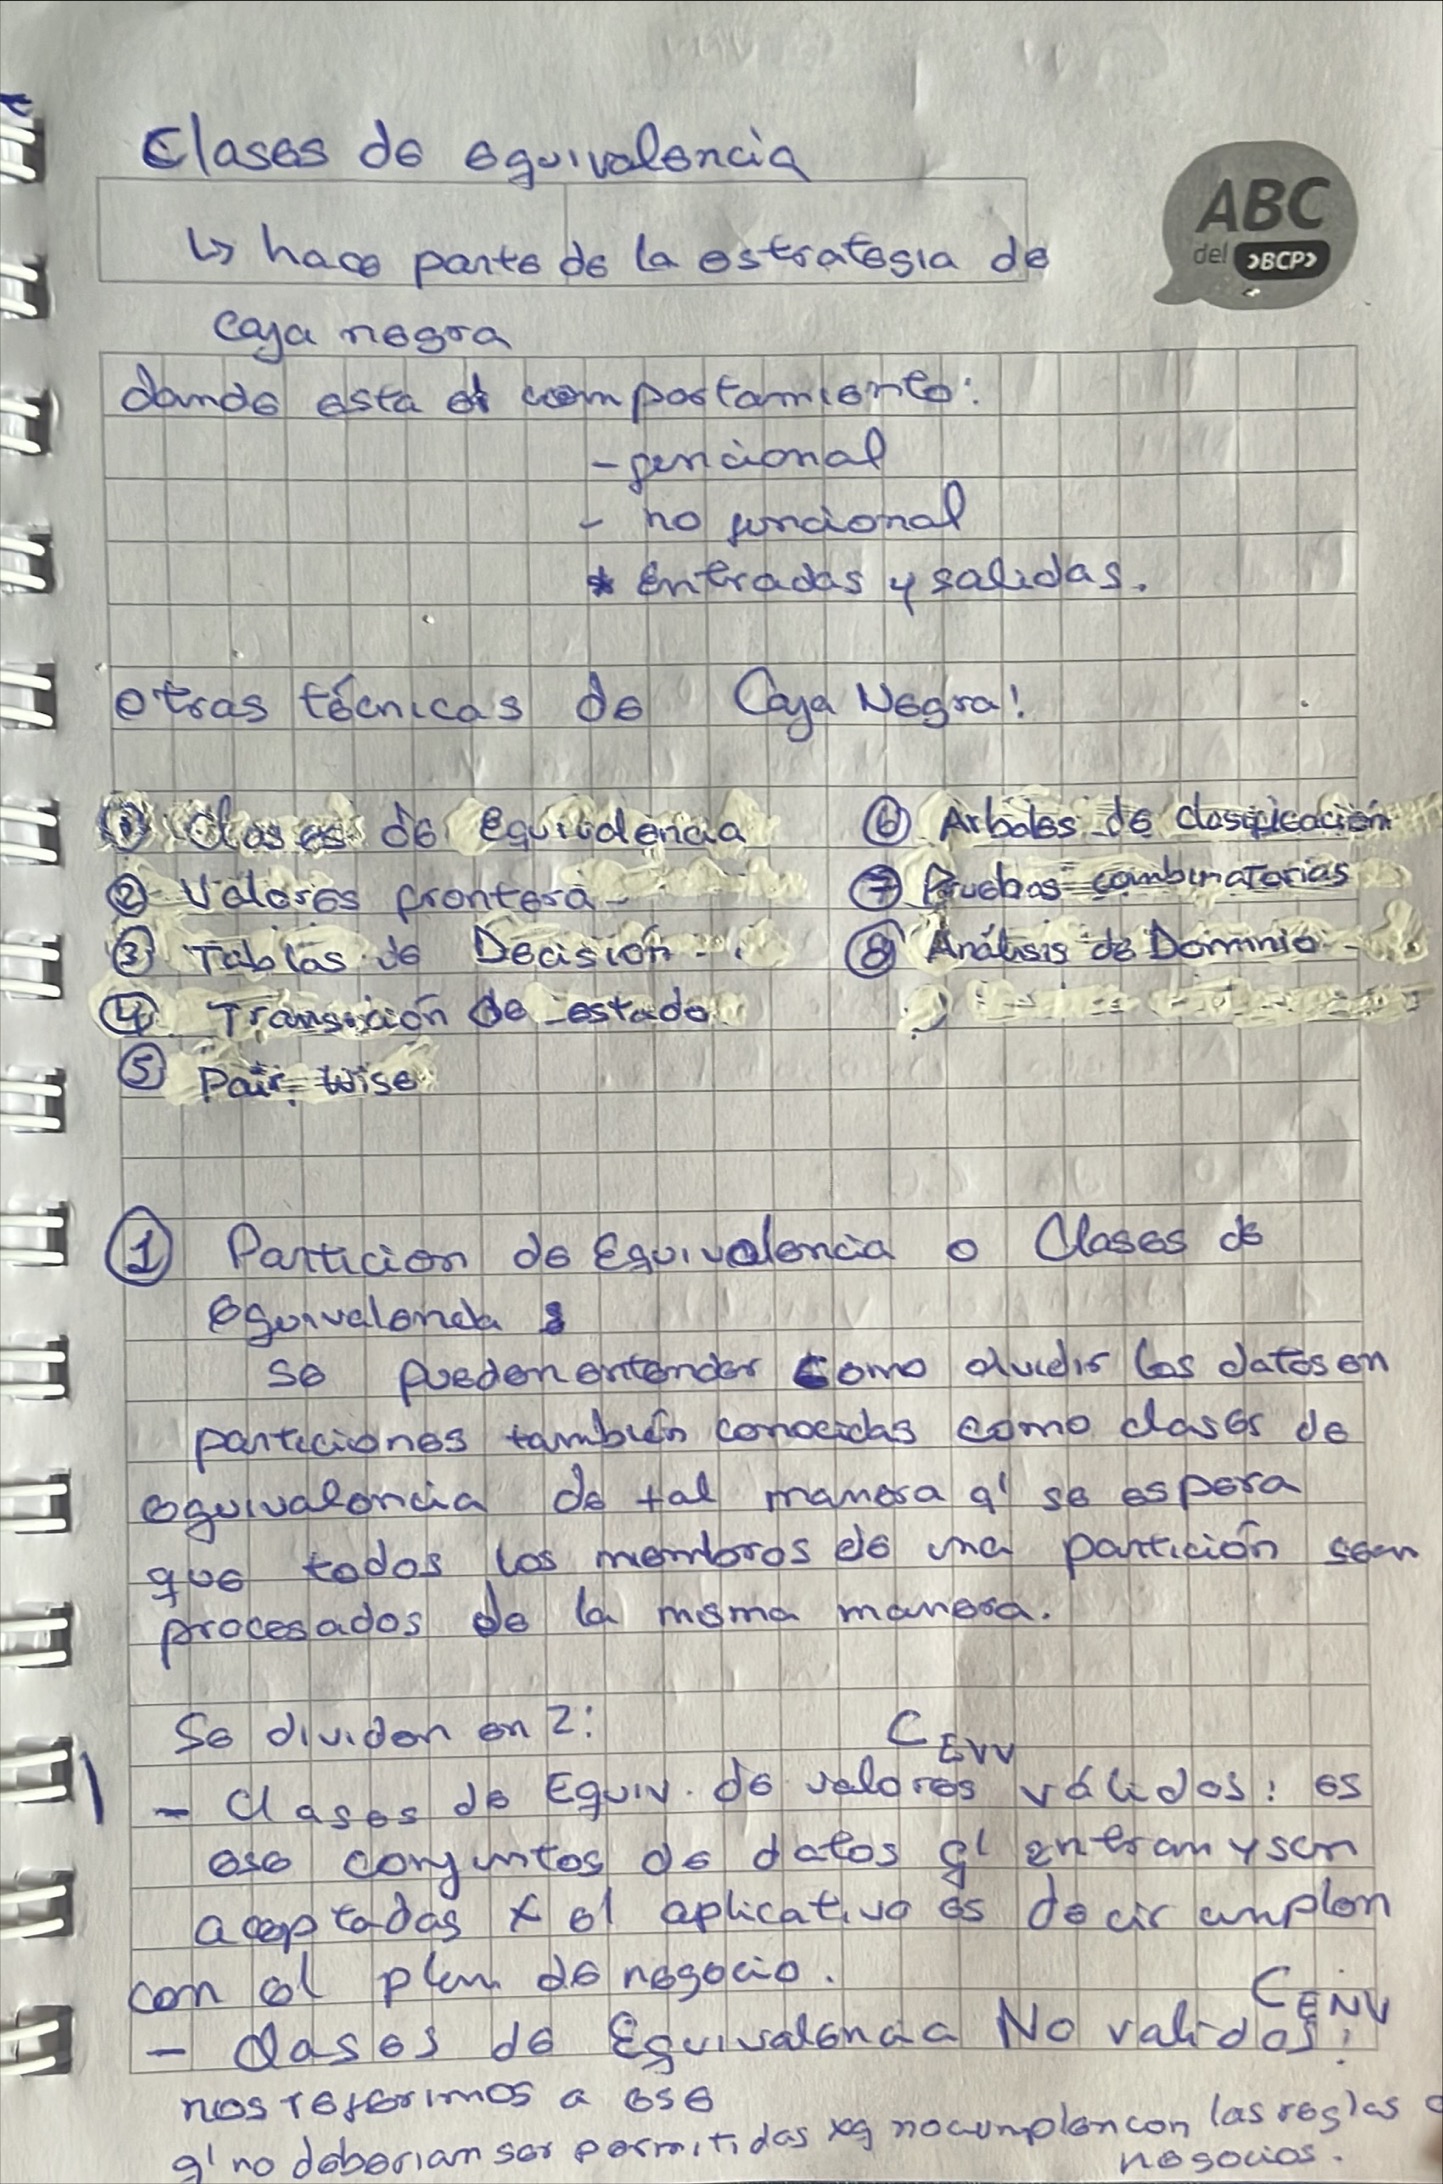 Clases de equivalencia
ABC
del >BCP>
↳ hace parte de la estrategia de
caja negra
donde esta el comportamiento:
- funcional
- no funcional
* Entradas y salidas.
otras técnicas de Caja Negra!
① Clases de Equivalencia
② Valores frontera
③ Tablas de Decisión
④ Transición de estado
⑤ Pair Wise
⑥ Arboles de clasificación
⑦ Pruebas combinatorias
⑧ Análisis de Dominio
① Particion de Equivalencia o Clases de
equivalencia :
se pueden entender como dividir los datos en
particiones también conocidas como clases de
equivalencia de tal manera q' se espera
que todos los membros de una partición sean
procesados de la misma manera.
Se dividen en 2:
CEVV
- Clases de Equiv. de valores válidos: es
ese conjuntos de datos q' entran y son
aceptadas x el aplicativo es decir cumplen
con el plan de negocio.
CENV
- Clases de Equivalencia No validos:
nos referimos a ese
q' no deberian ser permitidas xq no cumplen con las reglas
negocios.